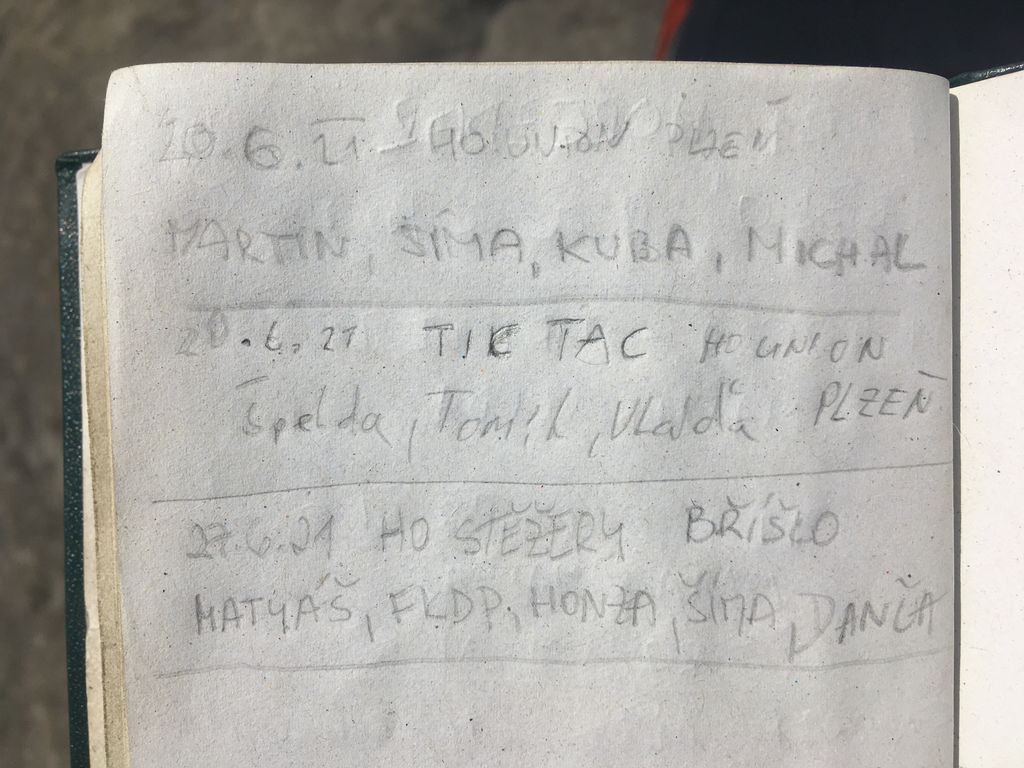 20.6.21 HO UNION PLZEŇ
MARTIN, ŠÍMA, KUBA, MICHAL
20.6.21 TIC TAC HO UNION
Špelda, Tomík, Vlaďa PLZEŇ
27.6.21 HO STĚŽERY BŘÍŠLO
MATYÁŠ, FLDP, HONZA, ŠÍMA, DANČA